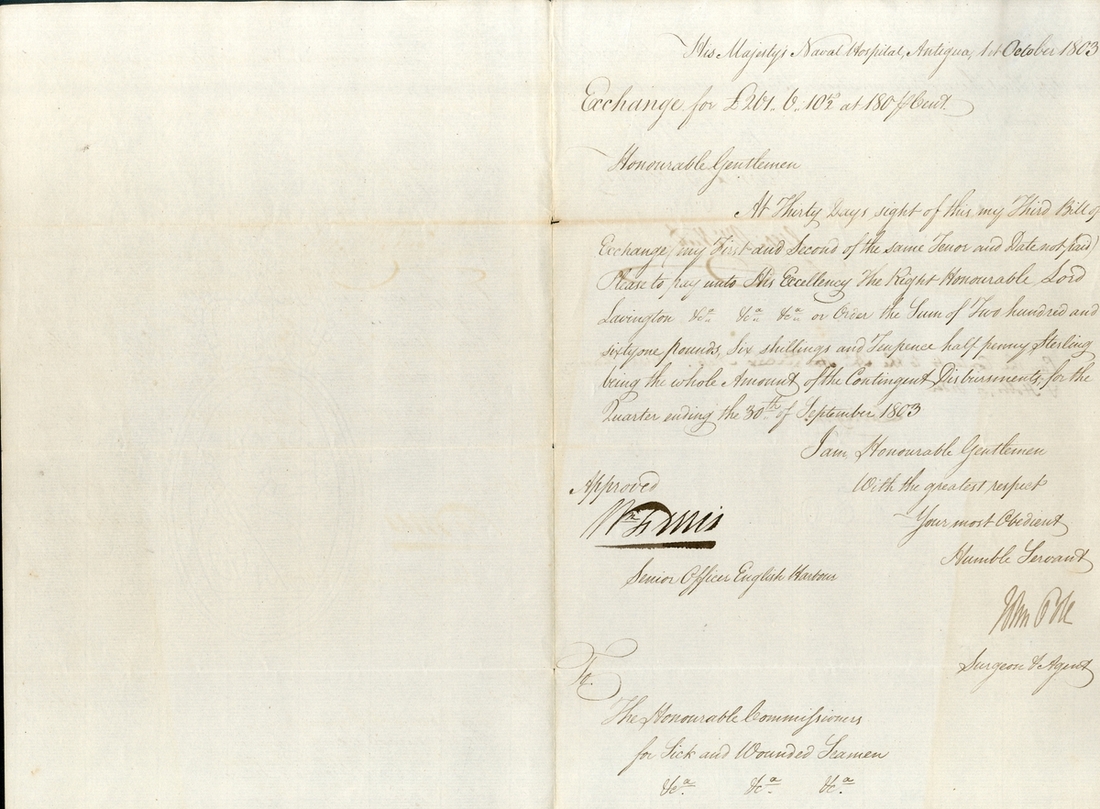 His Majesty's Naval Hospital, Antigua, 1st October 1803
Exchange for £261.. 6.. 10½ at 180 ⅌ Cent.
Honourable Gentlemen
At Thirty Days sight of this my Third Bill of
Exchange (my First and Second of the same Tenor and Date not paid)
Please to pay unto His Excellency The Right Honourable Lord
Lavington &cᵃ &cᵃ &cᵃ or Order the Sum of Two hundred and
sixty one pounds, six shillings and Tenpence half penny Sterling
being the whole Amount of the Contingent Disbursments, for the
Quarter ending the 30th of September 1803
I am, Honourable Gentlemen
With the greatest respect
Your most Obedient
Humble Servant
John Pole
Surgeon & Agent
Approved
Wm
Senior Officer English Harbour
To.
The Honourable Commissioners
for Sick and Wounded Seamen
&cᵃ. &cᵃ. &cᵃ.